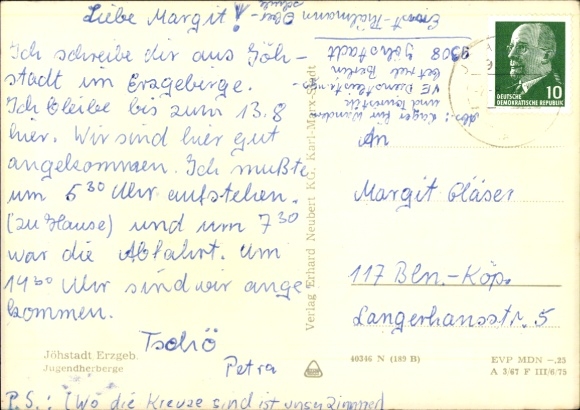 Liebe Margit!
Ich schreibe dir aus Jöh-
stadt im Erzgeberge.
Ich bleibe bis zum 13.8
hier. Wir sind hier gut
angekommen. Ich mußte
um 5 30 Uhr aufstehen.
(zu Hause) und um 7 30
war die Abfahrt. Um
14 30 Uhr sind wir ange
kommen.
Tschö
Petra
P.S.: (Wo die Kreuze sind ist unser Zimmer)
Jöhstadt Erzgeb.
Jugendherberge
Verlag Erhard Neubert KG, Karl-Marx-Stadt
Abs.: Lager für Wandern
und Touristik
VE Dienstleistungs
betrieb Berlin
9308 Jöhstadt
Ernst-Thälmann Ober
schule
10
DEUTSCHE
DEMOKRATISCHE REPUBLIK
An
Margit Gläser
117 Bln.-Köp.
Langerhansstr. 5
40346 N (189 B)
EVP MDN -.25
A 3/67 F III/6/75